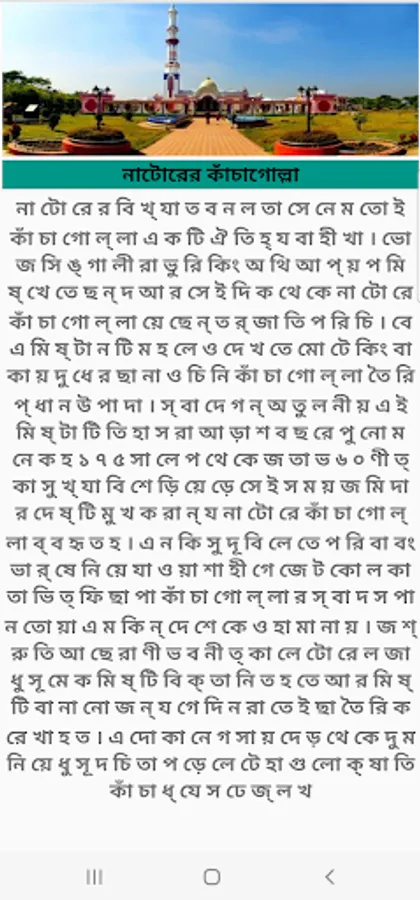 নাটোরের কাঁচাগোল্লা
না টো রে র বি খ্ যা ত ব ন ল তা সে নে ম তো ই
কাঁ চা গো ল্ লা এ ক টি ঐ তি হ্ য বা হী খা । ভো
জ সি ঙ্ গা লী রা ভু রি কিং অ থি আ প্ য় প মি
ষ্ খে তে ছ ন্ দ আ র সে ই দি ক থে কে না টো রে
কাঁ চা গো ল্ লা য়ে ছে ন্ ত র্ জা তি প রি চি । বে
এ মি ষ্ টা ন টি ম হ লে ও দে খ তে মো টে কিং বা
কা য় দু ধে র ছা না ও চি নি কাঁ চা গো ল্ লা তৈ রি
প্ ধা ন উ পা দা । স্ বা দে গ ন্ অ তু ল নী য় এ ই
মি ষ্ টা টি তি হা স রা আ ড়া শ ব ছ রে পু নো ম
নে ক হ ১ ৭ ৫ সা লে প থে কে জ তা ভ ৬ ০ ণী ত্
কা সু খ্ যা বি শে ড়ি য়ে ড়ে সে ই স ম য় জ মি দা
র দে ষ্ টি মু খ ক রা ন্ য না টো রে কাঁ চা গো ল্
লা ব্ ব হৃ ত হ । এ ন কি সু দূ বি লে তে প রি বা বং
ভা র্ ষে নি য়ে যা ও য়া শা হী গে জে ট কো ল কা
তা ভি ত্ ফি ছা পা কাঁ চা গো ল্ লা র স্ বা দ স পা
ন তো য়া এ ম কি ন্ দে শে কে ও হা মা না য় । জ শ্
রু তি আ ছে রা ণী ভ ব নী ত্ কা লে টো রে ল জা
ধু সূ মে ক মি ষ্ টি বি ক্ তা নি ত হ তে আ র মি ষ্
টি বা না নো জ ন্ য গে দি ন রা তে ই ছা তৈ রি ক
রে খা হ ত । এ দো কা নে গ সা য় দে ড় থে কে দু ম
নি য়ে ধু সূ দ চি তা প ড়ে লে টে হা গু লো ক্ ষা তি
কাঁ চা ধ্ যে স ঢে জ্ ল খ